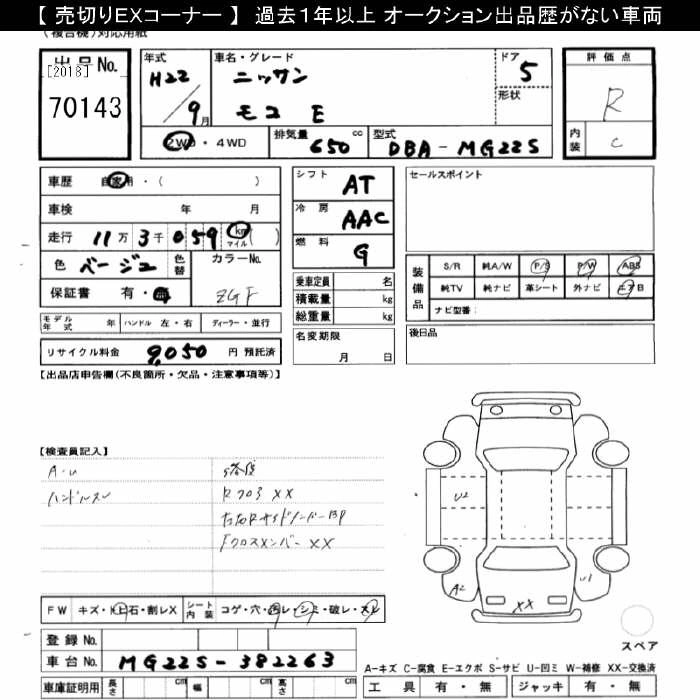 【 売切りEXコーナー 】 過去１年以上 オークション出品歴がない車両
(複合機)対応用紙
出品No.
[2018]
70143
年式
H22
9月
車名・グレード
ニッサン
モコ E
ドア
5
形状
評価点
R
内装
C
2WD・4WD
排気量
650 cc
型式
DBA-MG22S
車歴 自家用・( )
車検 年 月
走行 11万3千059 km マイル ( )
色 ベージュ
色替
カラーNo.
ZGF
保証書 有・無
モデル年式 年
ハンドル 左・右
ディーラー・並行
リサイクル料金 9,050 円 預託済
シフト AT
冷房 AAC
燃料 G
乗車定員 名
積載量 kg
総重量 kg
名変期限
月 日
セールスポイント
装備品
S/R 純A/W P/S P/W ABS
純TV 純ナビ 革シート 外ナビ エアB
ナビ型番:
後日品
【出品店申告欄(不良箇所・欠品・注意事項等)】
【検査員記入】
A・U
ハンドルスレ
Rフロア XX
左右Rサイドメンバー BP
Fクロスメンバー XX
U2
A2
U1
XX
FW キズ・ト上石・割レX
シート内装 コゲ・穴・凹レ・シミ・破レ・スレ
登録No.
車台No. MG22S-382263
車庫証明用 長さ cm 幅 cm 高さ cm
スペア
A-キズ C-腐食 E-エクボ S-サビ U-凹ミ W-補修 XX-交換済
工具 有・無 ジャッキ 有・無